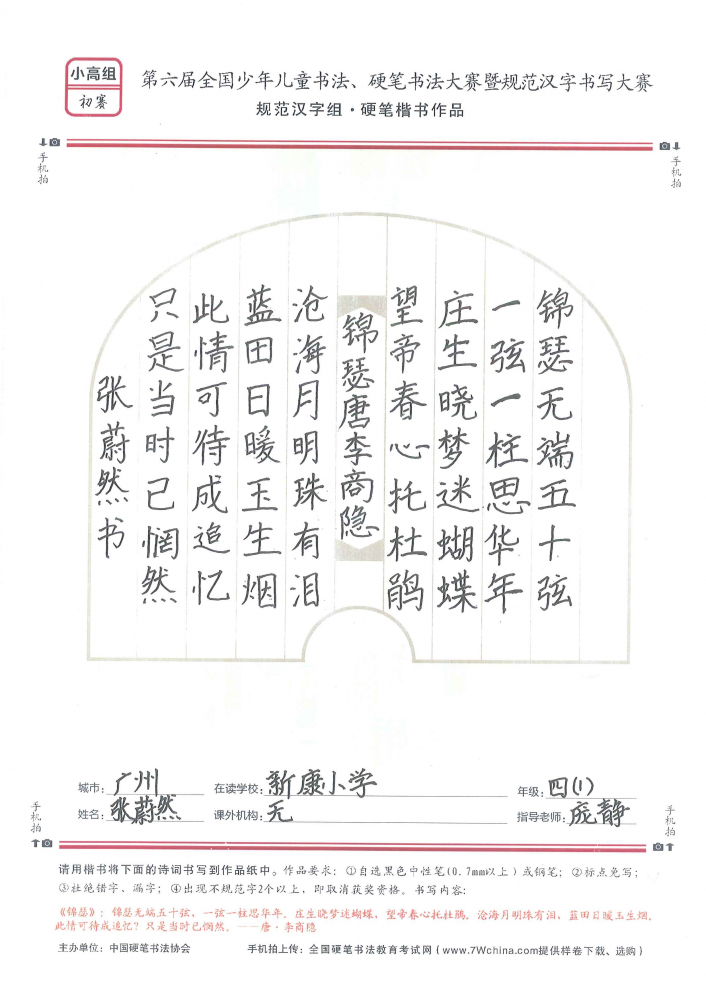 小高组
初赛
第六届全国少年儿童书法、硬笔书法大赛暨规范汉字书写大赛
规范汉字组·硬笔楷书作品
手机拍
手机拍
锦瑟无端五十弦
一弦一柱思华年
庄生晓梦迷蝴蝶
望帝春心托杜鹃
锦瑟唐李商隐
沧海月明珠有泪
蓝田日暖玉生烟
此情可待成追忆
只是当时已惘然
张蔚然书
城市：广州 在读学校：新康小学 年级：四(1)
姓名：张蔚然 课外机构：无 指导老师：庞静
手机拍
手机拍
请用楷书将下面的诗词书写到作品纸中。作品要求：①自选黑色中性笔(0.7mm以上)或钢笔；②标点免写；
③杜绝错字、漏字；④出现不规范字2个以上，即取消获奖资格。书写内容：
《锦瑟》：锦瑟无端五十弦，一弦一柱思华年。庄生晓梦迷蝴蝶，望帝春心托杜鹃。沧海月明珠有泪，蓝田日暖玉生烟。
此情可待成追忆？只是当时已惘然。——唐·李商隐
主办单位：中国硬笔书法协会 手机拍上传：全国硬笔书法教育考试网（www.7Wchina.com提供样卷下载、选购）